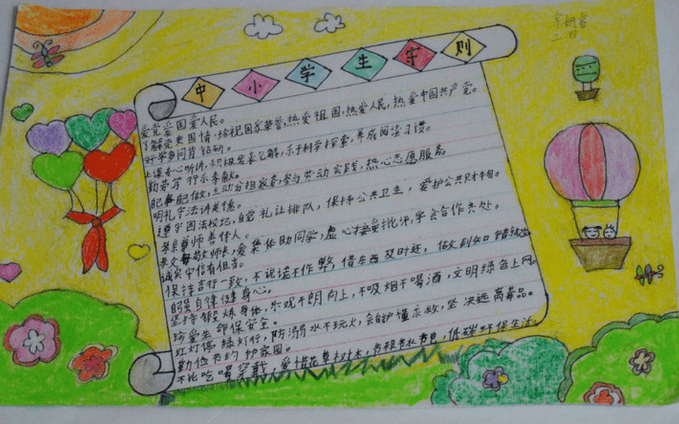 中小学生守则
二.四
爱党爱国爱人民。
了解党史国情,珍视国家荣誉,热爱祖国,热爱人民,热爱中国共产党。
好学多问肯钻研。
上课专心听讲,积极发表见解,乐于科学探索,养成阅读习惯。
勤劳笃行乐奉献。
自己事自己做,主动分担家务,参与劳动实践,热心志愿服务。
明礼守法讲美德。
遵守国法校纪,自觉礼让排队,保持公共卫生,爱护公共财物。
孝亲尊师善待人。
孝父母敬师长,爱集体助同学,虚心接受批评,学会合作共处。
诚实守信有担当。
保持言行一致,不说谎不作弊,借东西及时还,做到知错就改。
自强自律健身心。
坚持锻炼身体,乐观开朗向上,不吸烟不喝酒,文明绿色上网。
珍爱生命保安全。
红灯停绿灯行,防溺水不玩火,会自护懂求救,坚决远离毒品。
勤俭节约护家园。
不比吃喝穿戴,爱惜花草树木,节粮节水节电,低碳环保生活。